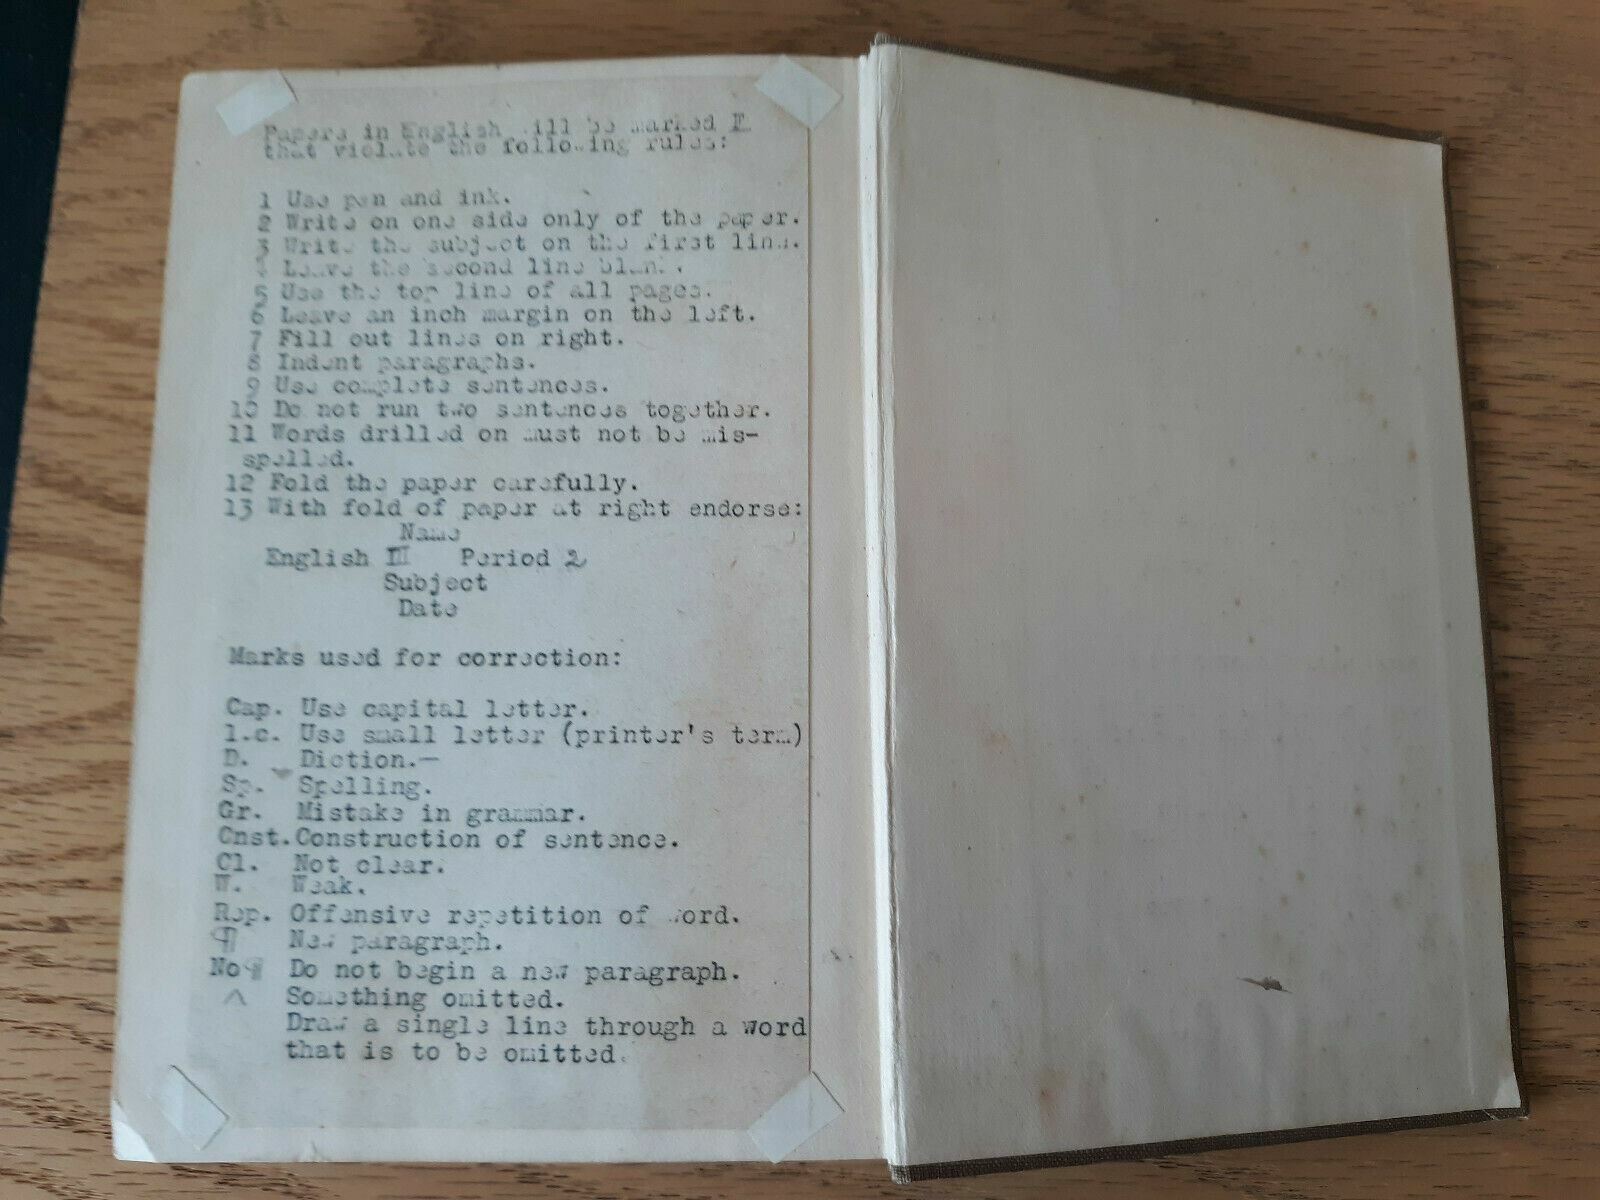 Papers in English will be marked F
that violate the following rules:
1 Use pen and ink.
2 Write on one side only of the paper.
3 Write the subject on the first line.
4 Leave the second line blank.
5 Use the top line of all pages.
6 Leave an inch margin on the left.
7 Fill out lines on right.
8 Indent paragraphs.
9 Use complete sentences.
10 Do not run two sentences together.
11 Words drilled on must not be mis-
spelled.
12 Fold the paper carefully.
13 With fold of paper at right endorse:
Name
English III Period 2
Subject
Date
Marks used for correction:
Cap. Use capital letter.
l.c. Use small letter (printer's term)
D. Diction.—
Sp. Spelling.
Gr. Mistake in grammar.
Cnst. Construction of sentence.
Cl. Not clear.
W. Weak.
Rep. Offensive repetition of word.
¶ New paragraph.
No ¶ Do not begin a new paragraph.
^ Something omitted.
Draw a single line through a word
that is to be omitted.